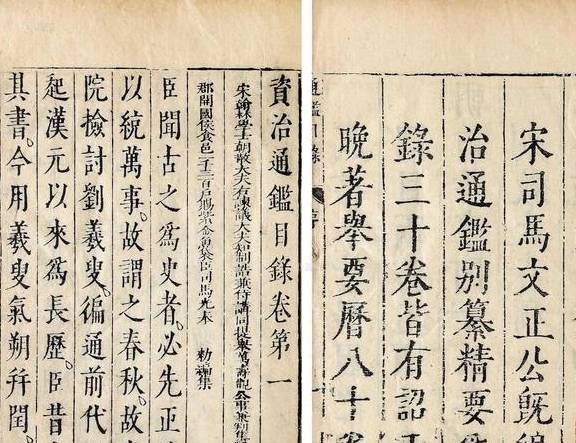 宋司馬文正公旣
治通鑑別纂精要
錄三十卷皆有詔
晚著舉要曆八十
通鑑目錄
資治通鑑目錄卷第一
宋翰林學士朝散大夫右諫議大夫知制誥兼侍講同提舉萬壽觀公事兼判集
郡開國侯食邑一千三百戶賜紫金魚袋臣司馬光奉 勅編集
臣聞古之爲史者。必先正
以統萬事。故謂之春秋。故
院檢討劉羲叟。徧通前代
起漢元以來爲長歷。臣昔
其書。今用羲叟氣朔幷閏